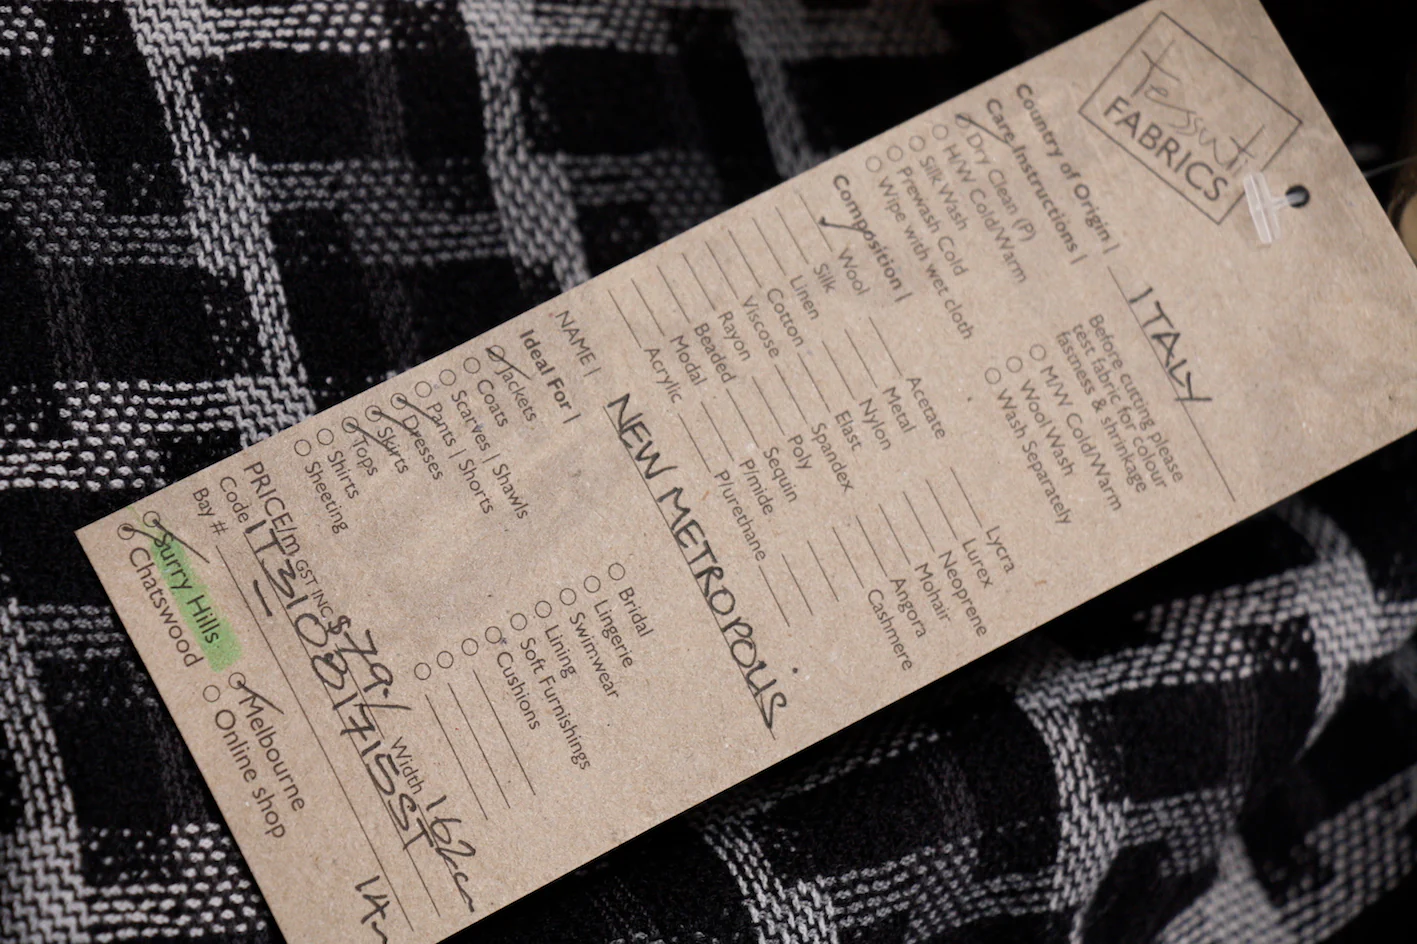 Tessuti
FABRICS
Country of Origin | ITALY
Care Instructions |
Before cutting please
test fabric for colour
fastness & shrinkage
Dry Clean (P)
H/W Cold/Warm
Silk Wash
Prewash Cold
Wipe with wet cloth
M/W Cold/Warm
Wool Wash
Wash Separately
Composition |
Wool
Silk
Linen
Cotton
Viscose
Rayon
Beaded
Modal
Acrylic
Acetate
Metal
Nylon
Elast
Spandex
Poly
Sequin
P/mide
P/urethane
Lycra
Lurex
Neoprene
Mohair
Angora
Cashmere
NAME | NEW METROPOLIS
Ideal For |
Jackets
Coats
Scarves | Shawls
Pants | Shorts
Dresses
Skirts
Tops
Shirts
Sheeting
Bridal
Lingerie
Swimwear
Lining
Soft Furnishings
Cushions
PRICE/m GST INC $79./ Width 162cm
Code
Bay #
Surry Hills
Chatswood
Melbourne
Online shop